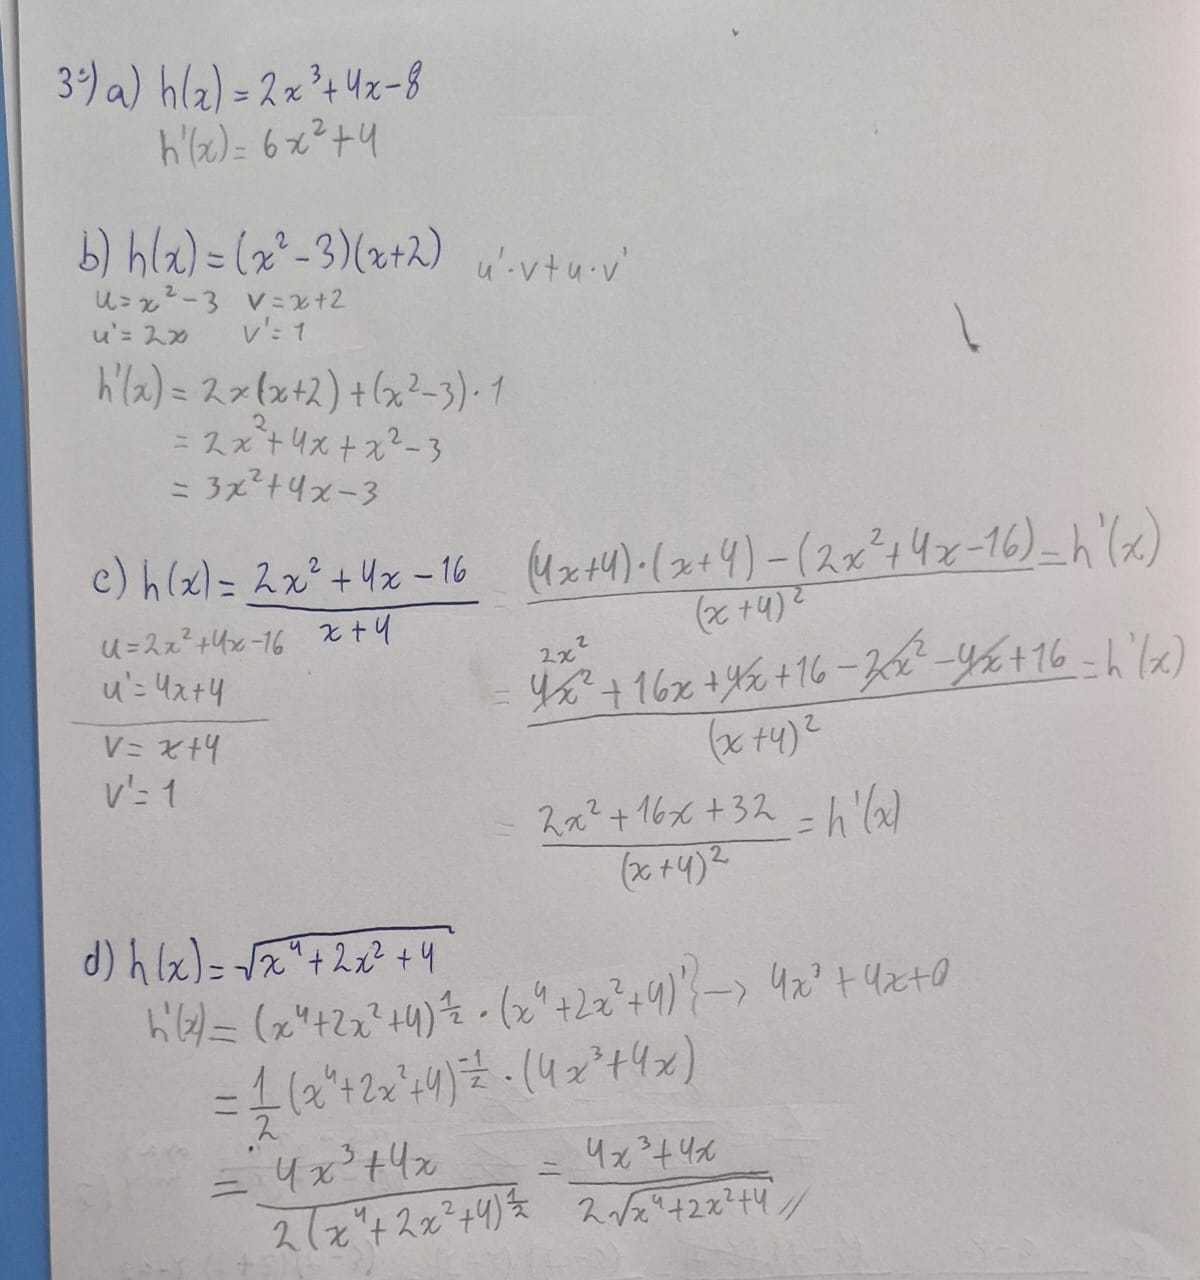 3º) a) h(x) = 2x³ + 4x - 8
h'(x) = 6x² + 4
b) h(x) = (x² - 3)(x+2) u'·v + u·v'
u = x² - 3 v = x+2
u' = 2x v' = 1
h'(x) = 2x(x+2) + (x² - 3)·1
= 2x² + 4x + x² - 3
= 3x² + 4x - 3
c) h(x) = (2x² + 4x - 16)/(x + 4) = ((4x+4)·(x+4) - (2x² + 4x - 16))/(x+4)² = h'(x)
u = 2x² + 4x - 16
u' = 4x + 4
v = x + 4
v' = 1
2x²
= (4x² + 16x + 4x + 16 - 2x² - 4x + 16)/(x+4)² = h'(x)
= (2x² + 16x + 32)/(x+4)² = h'(x)
d) h(x) = √(x⁴ + 2x² + 4)
h'(x) = (x⁴ + 2x² + 4)^½ · (x⁴ + 2x² + 4)'} → 4x³ + 4x + 0
= 1/2 (x⁴ + 2x² + 4)^-½ · (4x³ + 4x)
= (4x³ + 4x)/(2(x⁴ + 2x² + 4)^½) = (4x³ + 4x)/(2√(x⁴ + 2x² + 4)) //